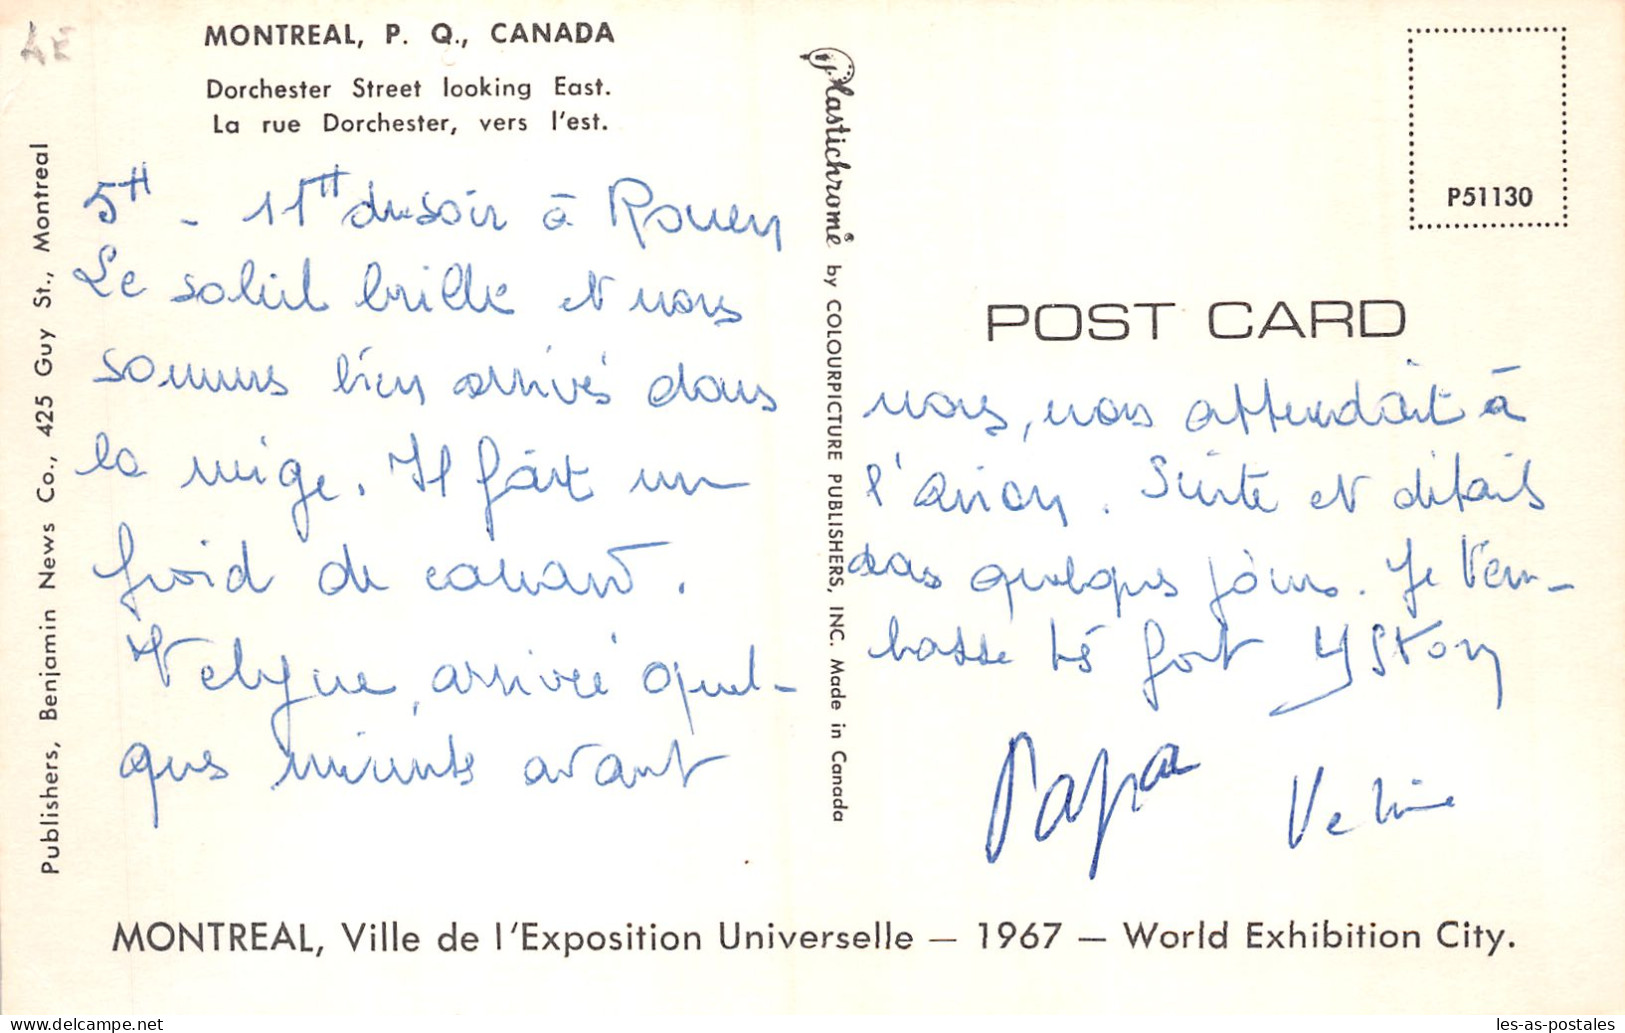 AE
MONTREAL, P. Q., CANADA
Dorchester Street looking East.
La rue Dorchester, vers l'est.
5H - 11H du soir à Rouen
Le soleil brille et nous
sommes bien arrivés dans
la neige. Il fait un
froid de canard.
arrivée quel-
ques minutes avant
Publishers, Benjamin News Co., 425 Guy St., Montreal
Plastichrome® by COLOURPICTURE PUBLISHERS, INC. Made in Canada
P51130
POST CARD
nous, nous attendait à
l'avion. Suite et détails
dans quelques jours. Je t'em-
brasse très fort
Papa
MONTREAL, Ville de l'Exposition Universelle — 1967 — World Exhibition City.
delcampe.net
les-as-postales